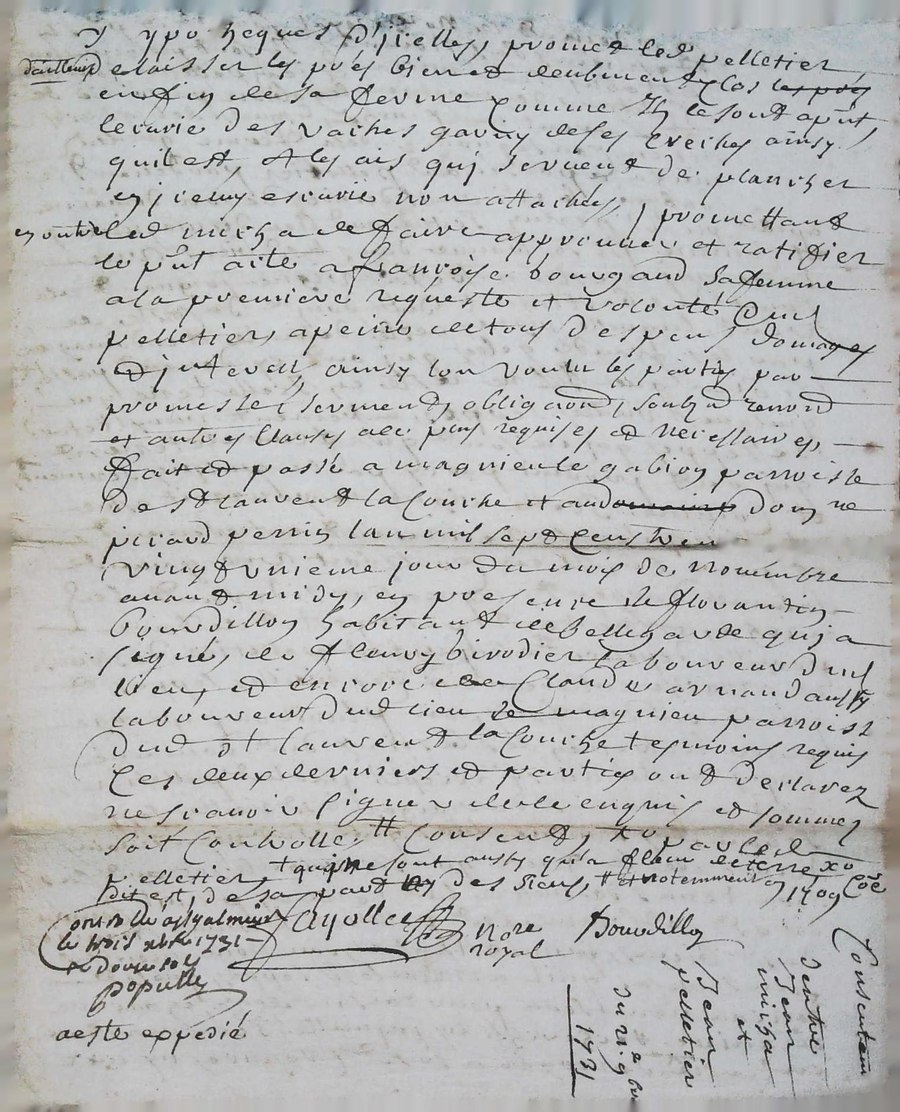 y ypoteques d'jcelles, promet led pelletier
d'ailleurs
elaisser les prés bien et deubment clos les prés
en fin de sa ferme comme Ils le sont apnt,
lecurie des vaches garny de ses creches ainsy
quil est, et les ais qui servent de plancher
en jcelluy escurie non attachés, promettant
en outre led micha de faire approuver et ratifier
le pnt acte a françoise bourgand sa femme
a la premiere requeste et volonté dud
pelletier, a peine de tous despens, domages
et jnterests, ainsy lon voulu les parties par
promesse, serment, obligaon, soub renond
et autres clauses ad ce requises et necessaires,
fait et passé a magnieu le gabion parroisse
de st laurent la Conche et au domaine dom ne
picard perrin lan mil sept Cens tren
vingt unieme jour du mois de novembre
avant midy, en presence de florantin
bourdillon habitant de bellegarde qui a
signé, de fleury birodier laboureur dud
lieu, et encore de Claude arnaud aussy
laboureur dud lieu de magnieu parroisse
dud st laurent la Conche tesmoins requis
Les deux derniers et parties ont declarez
ne scavoir signer de le enquis et sommez
soit Controlle, Consent par led
pelletier qui ne sont aussy qu'a fleur de terre xo
dit est, de sa part des siens, et notemment 1709 Coe
Controllé a st galmier
le trois xbre 1731
R Douze sols
Populle
aeste expedié
Fayolle
Nore
royal
Bourdillon
Consentem
dentre
Jean
micha
et
Jean
pelletier
du 21 9bre
1731